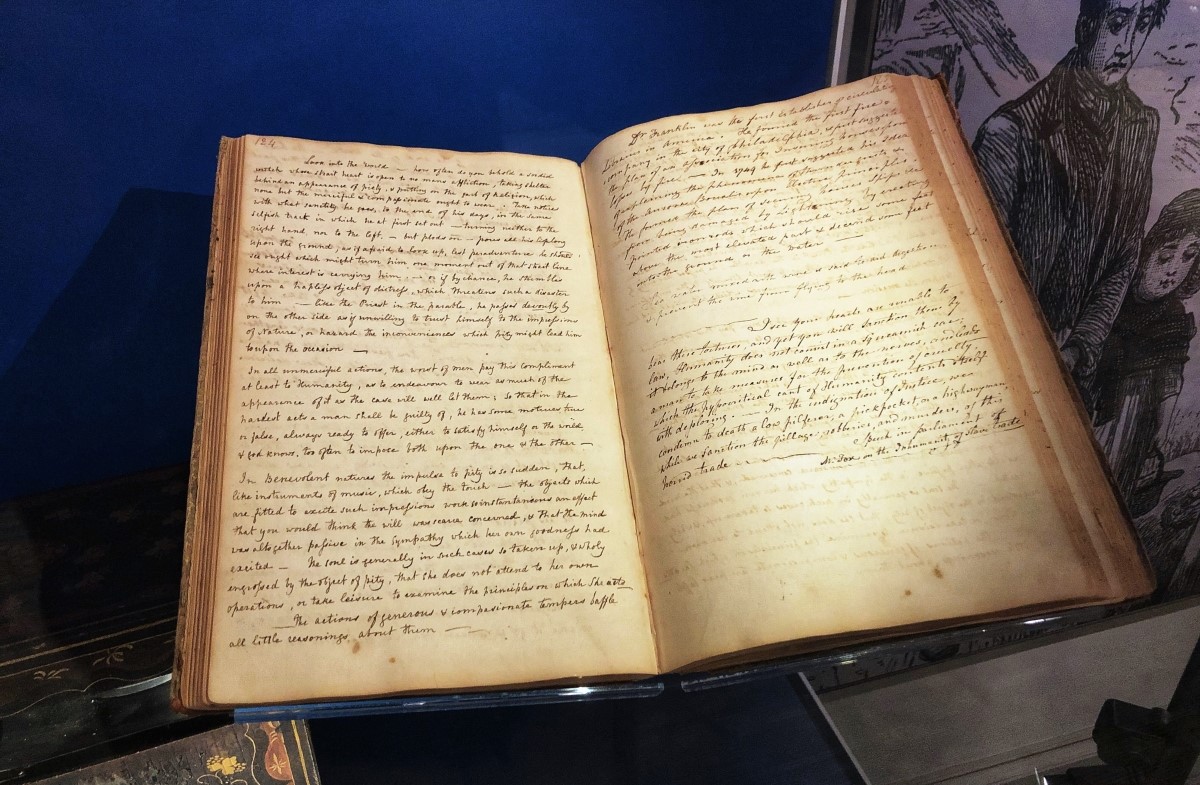 124
Look into the world — how often do you behold a sordid
wretch whose strait heart is open to no mans affliction, taking shelter
behind an appearance of piety, & putting on the garb of religion, which
none but the merciful & compassionate ought to wear. Take notice
with what sanctity he goes, to the end of his days, in the same
selfish track in which he at first set out — turning neither to the
right hand nor to the left, — but plods on — pores all his life long
upon the ground, as if afraid to look up, lest peradventure he should
see aught which might turn him one moment out of that strait line
where interest is carrying him — or if by chance, he stumbles
upon a hapless object of distress, which threatens such a disaster
to him — like the Priest in the parable, he passes devoutly by
on the other side as if unwilling to trust himself to the impressions
of Nature, or hazard the inconveniences which pity might lead him
to upon the occasion —
In all unmerciful actions, the worst of men pay this complement
at least to Humanity, as to endeavour to wear as much of the
appearance of it as the case will well let them; so that in the
hardest acts a man shall be guilty of, he has some motives true
or false, always ready to offer, either to satisfy himself or the world
& god knows, too often to impose both upon the one & the other —
In benevolent natures the impulse to pity is so sudden, that,
like instruments of music, which obey the touch — the objects which
are fitted to excite such impressions work so instantaneous an effect
that you would think the will was scarce concerned, & that the mind
was altogether passive in the sympathy which her own goodness had
excited — The soul is generally in such cases so taken up, & wholy
engrossed by the object of pity, that she does not attend to her own
operations, or take leisure to examine the principles on which she acts
The actions of generous & compasionate tempers baffle
all little reasonings about them —
Dr Franklin was the first establisher of circulat
Libraries in America. He formed the first fire
company in the city of Philadelphia, & first suggest
the plan of an association for insuring houses from
loss by fire — In 1749 he first suggested his Idea
of explaining the phenomenon of thunder gusts &
of the Aurora Borealis upon electric principles —
He formed the plan of securing houses ships &c
from being damaged by Lightening by erecting
pointed iron rods which should rise some feet
above the most elevated part & descend some feet
into the ground or the water —
water mixed with wine is said to aid digestion
& prevent the wine from flying to the head
I see your hearts are unable to
bear these tortures, and yet you will sanction them by
law, Humanity does not consist in a squeamish ear,
it belongs to the mind as well as to the nerves, and leads
a man to take measures for the prevention of cruelty,
which the hypocritical cant of Humanity contents itself
with deploring — In the indignation of Justice, we
condemn to death a low pilferer, a pickpocket or a highwayman
while we sanction the pillage, robberies, and murders, of this
horrid trade — Speech in parliament of
Mr Fox on the Inhumanity of Slave trade